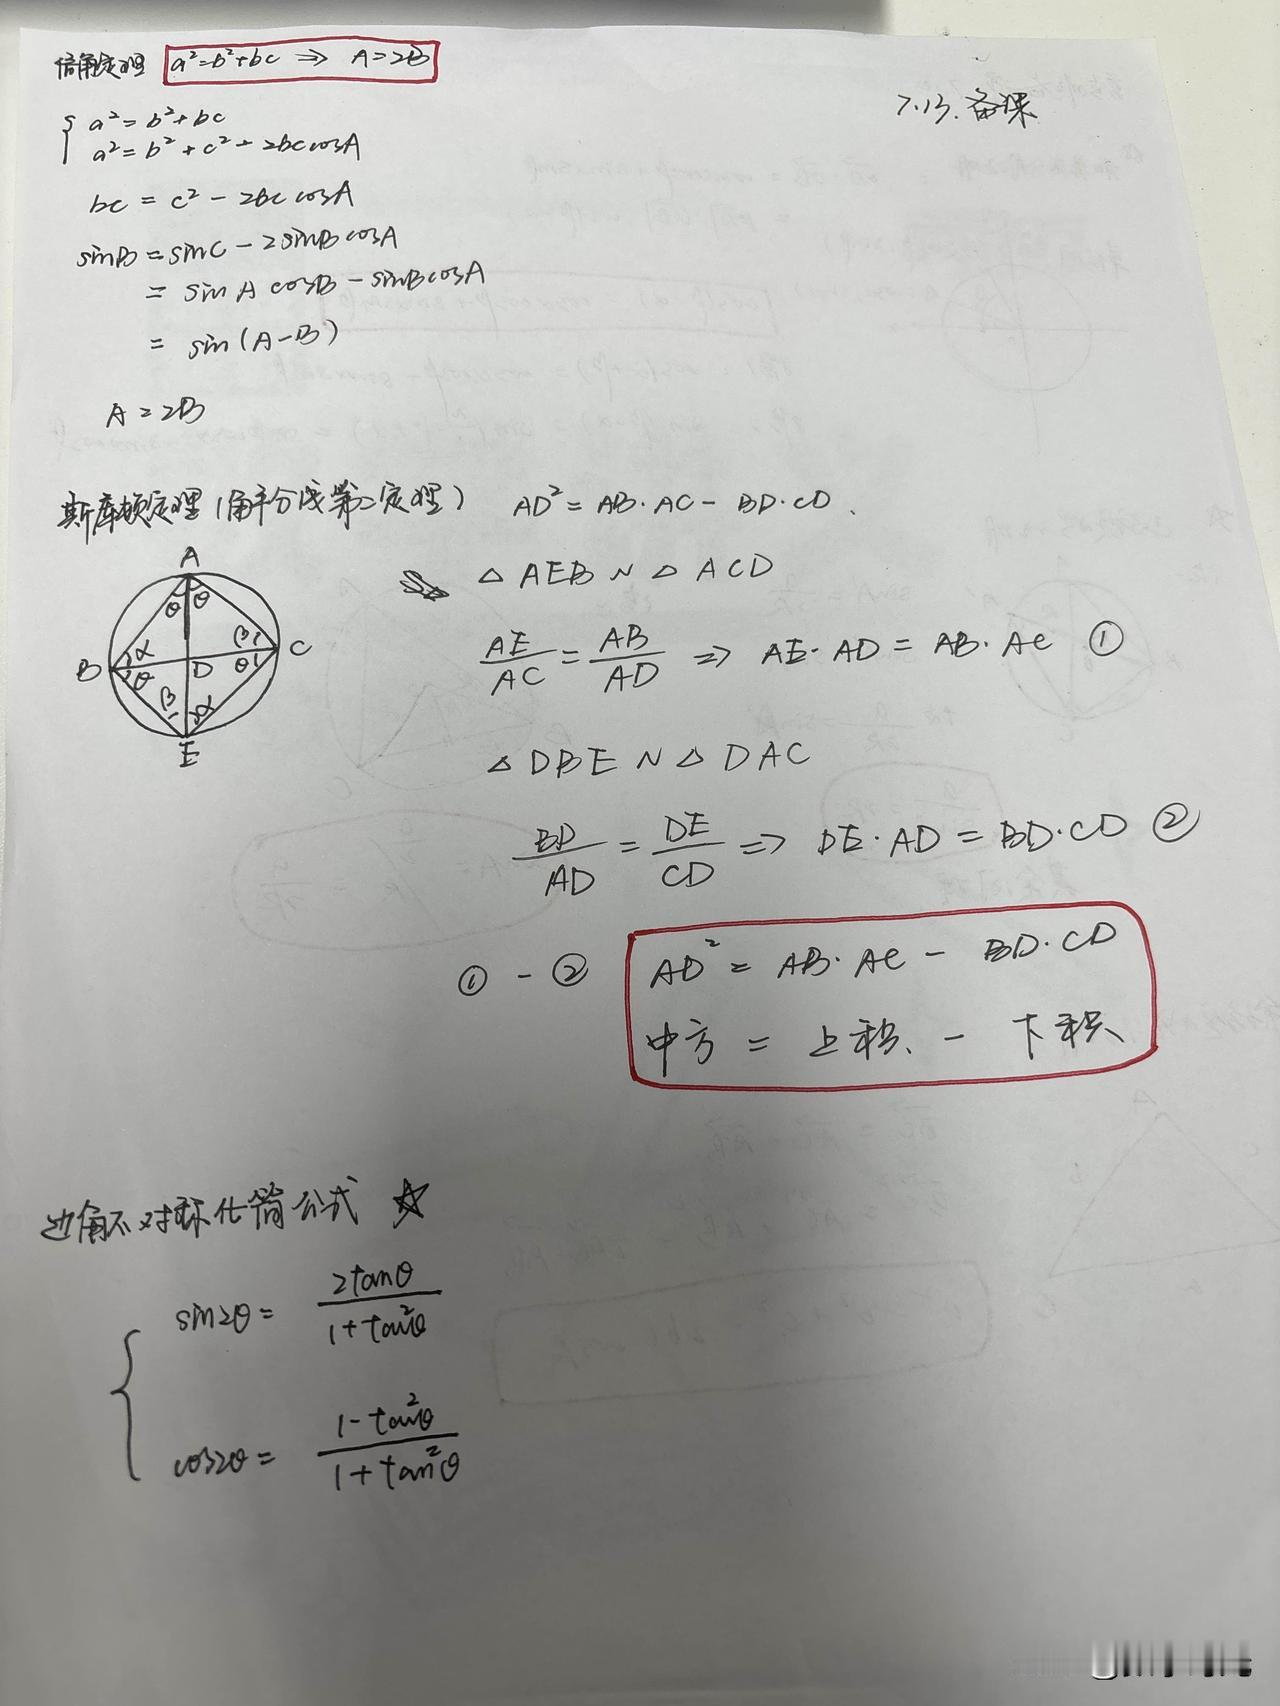 倍角定理 a²=b²+bc ⇒ A=2B
7.13.备课
a²=b²+bc
a²=b²+c²-2bccosA
bc=c²-2bccosA
sinB=sinC-2sinBcosA
=sinAcosB-sinBcosA
=sin(A-B)
A=2B
斯库顿定理(角平分线第二定理) AD²=AB·AC-BD·CD.
A
θ θ
B α β C
θ D θ
β α
E
△AEB∽△ACD
AE/AC=AB/AD ⇒ AE·AD=AB·AC ①
△DBE∽△DAC
BD/AD=DE/CD ⇒ DE·AD=BD·CD ②
①-② AD²=AB·AC-BD·CD
中方=上积-下积
边角不对称化简公式 ☆
sin2θ=2tanθ/(1+tan²θ)
cos2θ=(1-tan²θ)/(1+tan²θ)